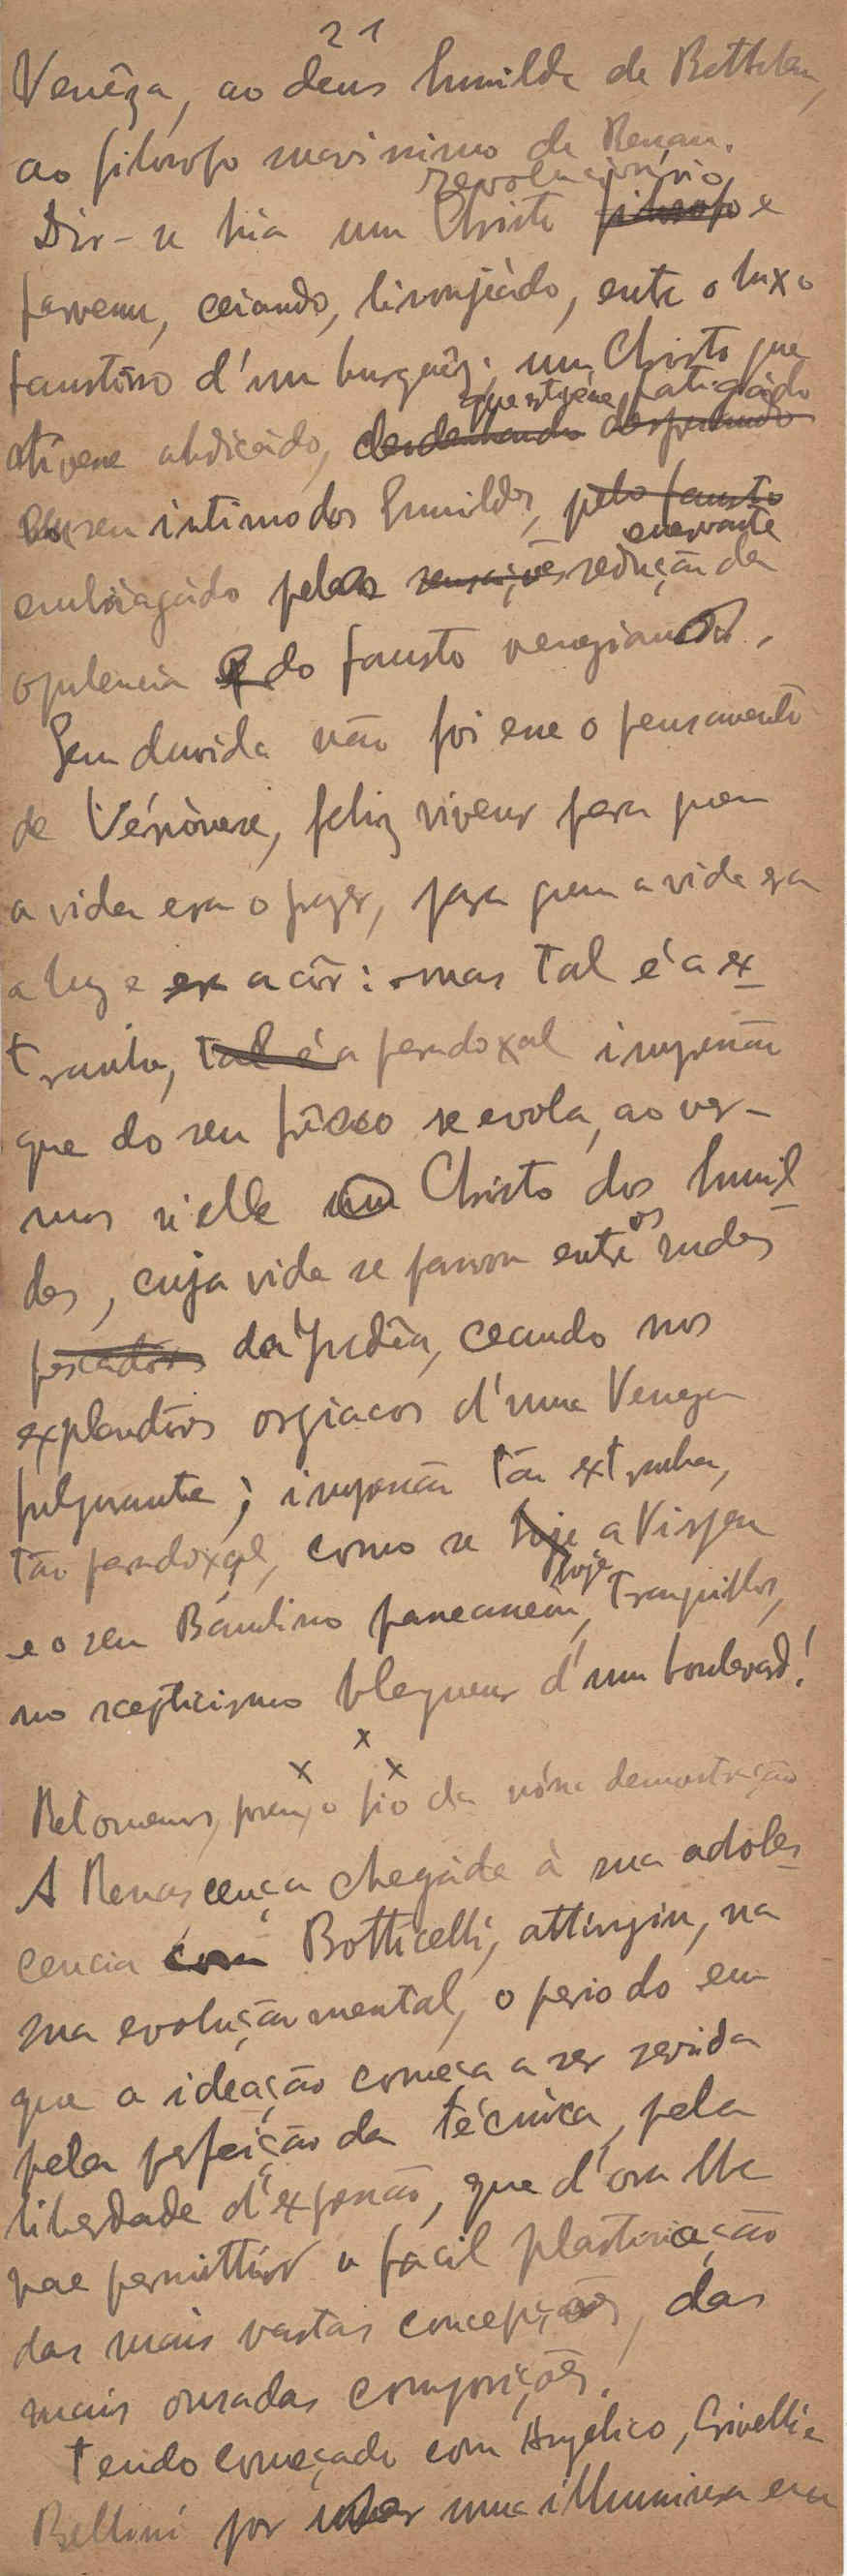 21
Venêza, ao deus humilde de Bethlem,
ao filosofo mavinimo de Renan.
revolucionário
Dir-se hia um Christo filosofo e
parvenu, ceiando, lisonjeádo, entre o luxo
faustôso d'um burguêz: um Christo que
que estgéne, fatigádo
otívene abdicádo, desdenhando desprezando
seu intimo dos humildes, pelo fausto
enervante
embriagádo pela sensações sedução da
opulencia e do fausto veneziano.
Sem duvida não foi esse o pensamento
de Véronèse, feliz viveur para quem
a vida era o prazer, para quem a vida era
a luz e era a côr: mas tal é a ex
tranha, tal é a paradoxal impressão
que do seu frêsco se evola, ao ver-
mos n'elle um Christo dos humil
des, cuja vida se passou entre os rudes
pescadores da Judêa, ceando nos
explendôres orgiacos d'uma Veneza
fulgurante; impressão tão extranha,
tão paradoxal, como se hoje a Virgem
hoje
e o seu Bambino passeassem, tranquillos,
no scepticismo blagueur d'um boulevard!
x x x
Retomemos, porem, o fio da nóssa demonstração
A Renascença chegáda à sua adoles
cencia com Botticelli, attingiu, na
sua evolução mental, o periodo em
que a ideação começa a ser servida
pela perfeição da técnica, pela
liberdade d'expressão, que d'ora lhe
vae permittir a facil plasticisação
das mais vastas concepções, das
mais ousadas composições.
Tendo começado com Angelico, Crivelli e
Bellini por uma illuminura em